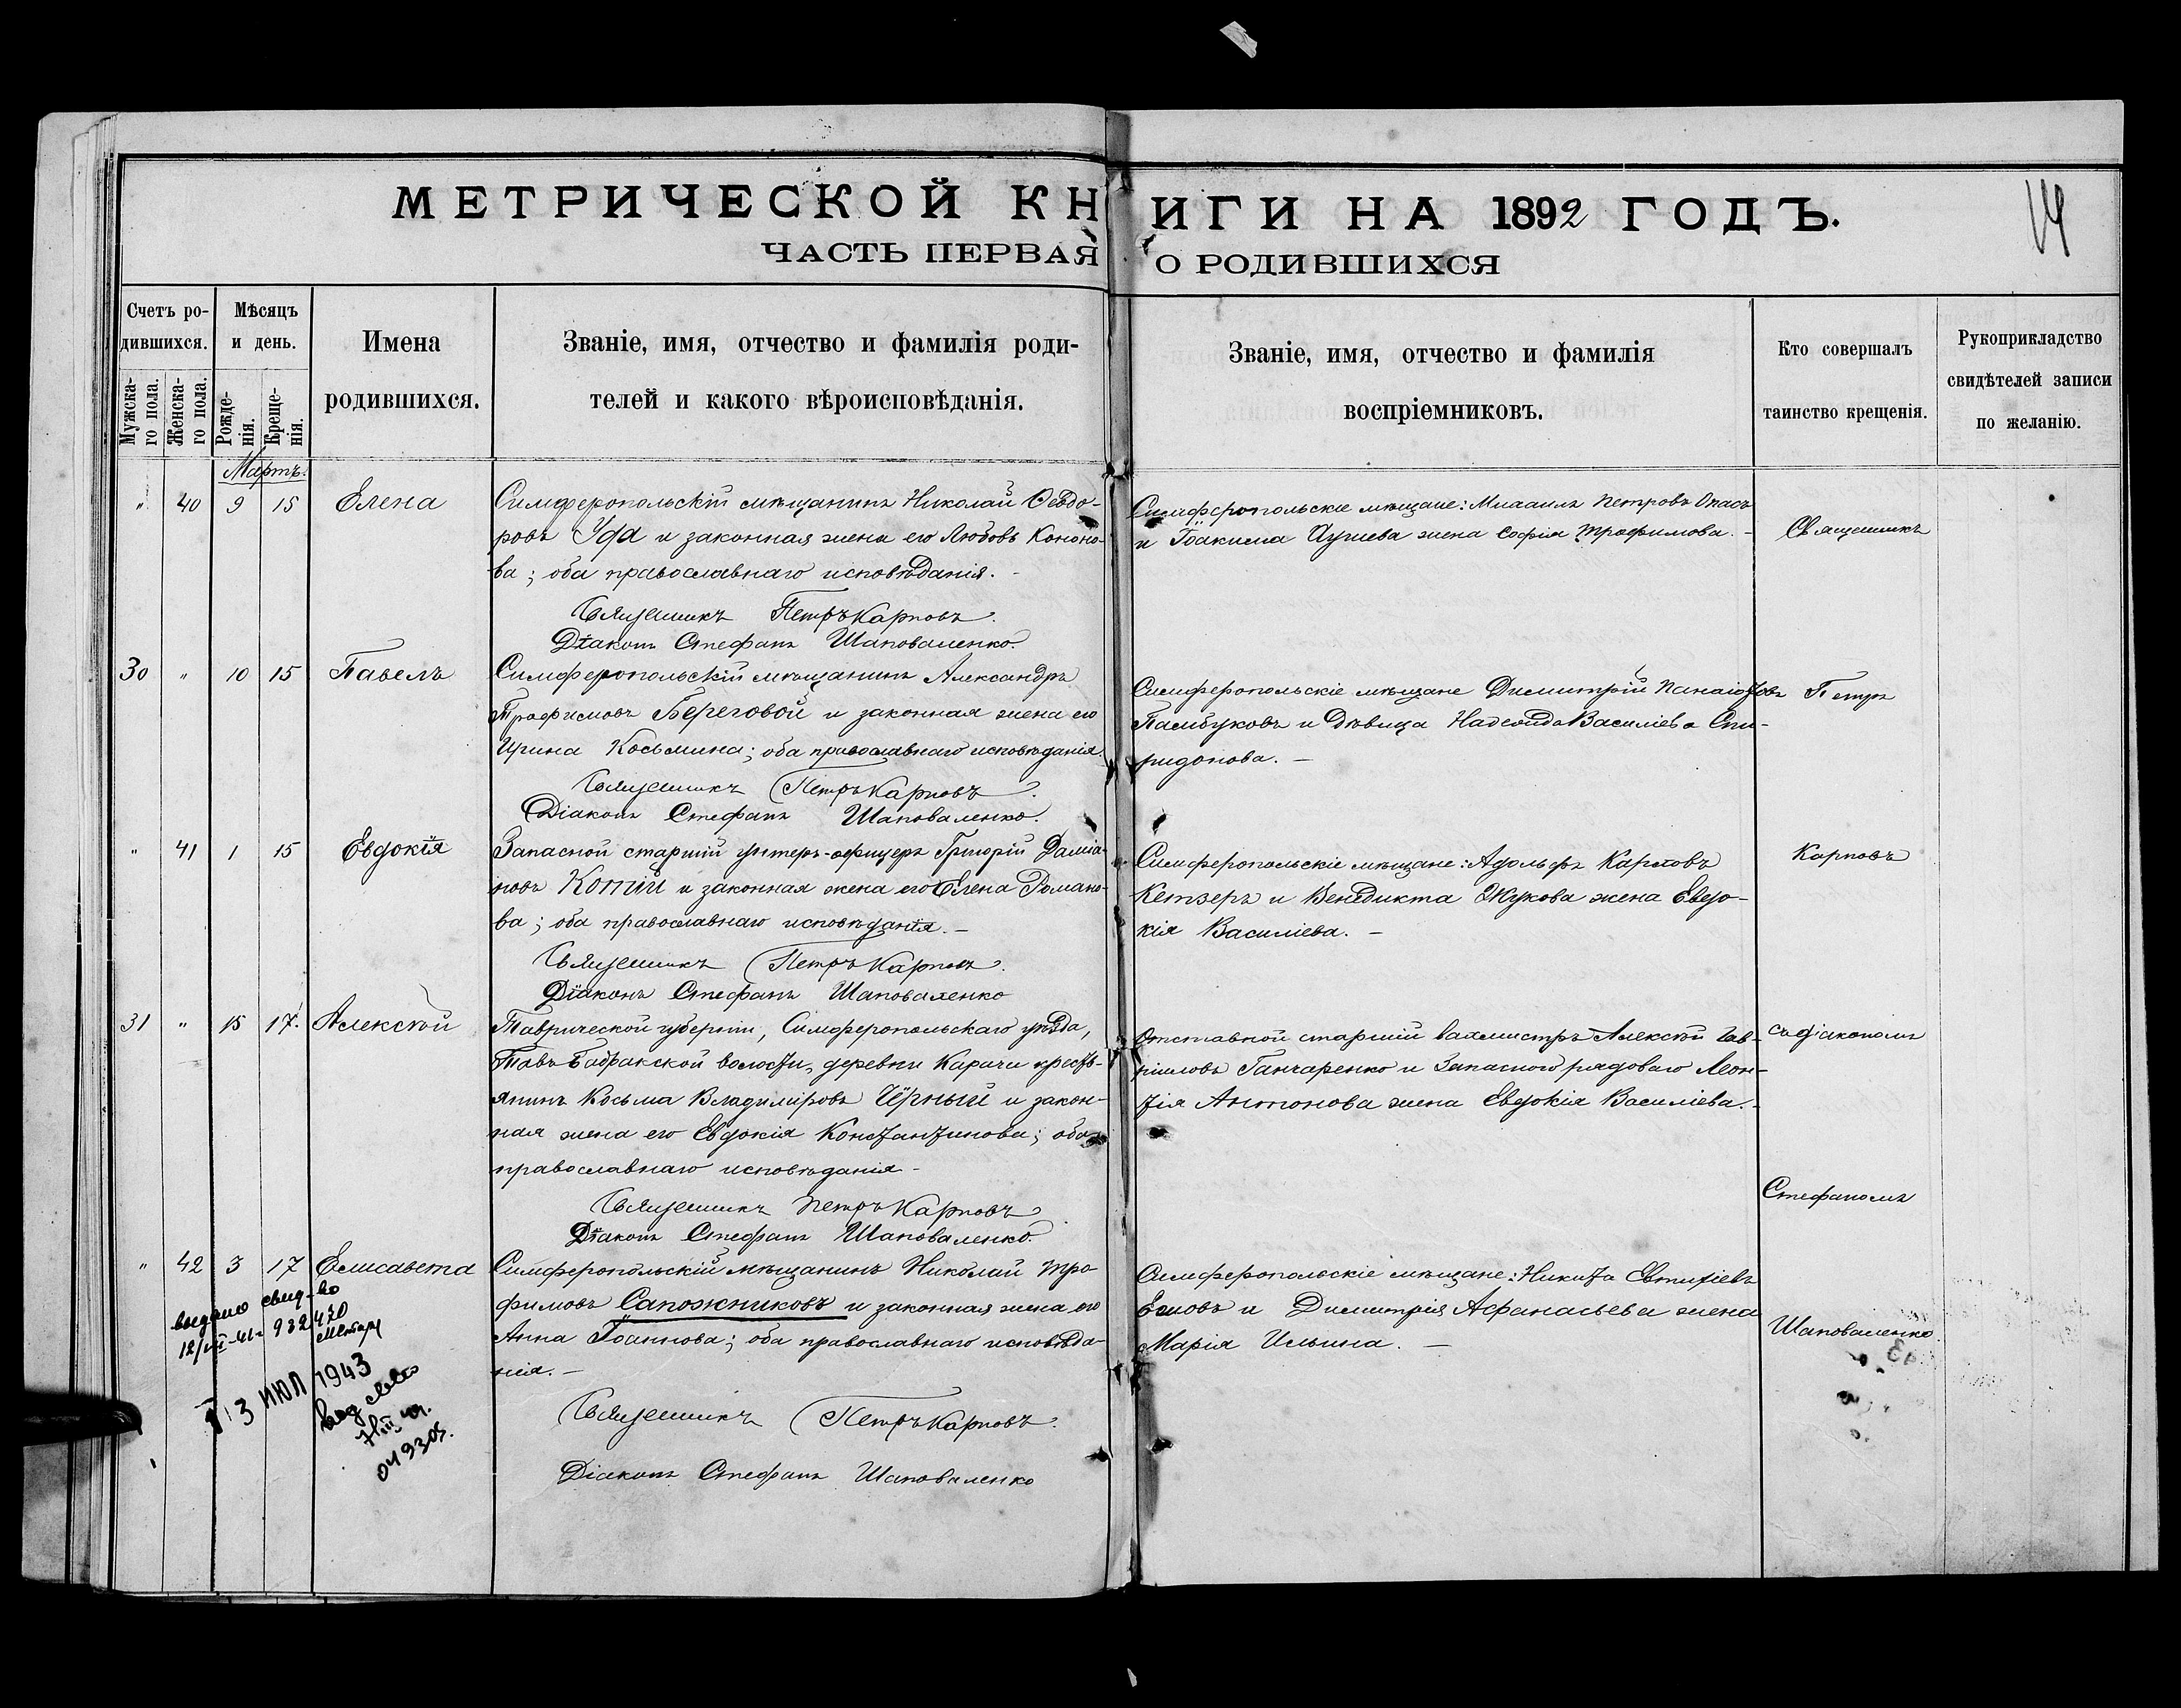 МЕТРИЧЕСКОЙ КНИГИ НА 1892 ГОДЪ.
14
ЧАСТЬ ПЕРВАЯ О РОДИВШИХСЯ
Счетъ родившихся.
Мужскаго пола.
Женскаго пола.
Мѣсяцъ и день.
Рожденія.
Крещенія.
Имена родившихся.
Званіе, имя, отчество и фамилія родителей и какого вѣроисповѣданія.
Званіе, имя, отчество и фамилія воспріемниковъ.
Кто совершалъ таинство крещенія.
Рукоприкладство свидѣтелей записи по желанію.
Мартъ.
" 40 9 15 Елена
Симферопольскій мѣщанинъ Николай Ѳеодо-
ровъ Уфа и законная жена его Любовь Кононо-
ва; оба православнаго исповѣданія. -
Священникъ Петръ Карповъ.
Діаконъ Стефанъ Шаповаленко.
Симферопольскіе мѣщане: Михаилъ Петровъ
и Іоакима жена Софія Трофимова. -
Священникъ
30 " 10 15 Павелъ
Симферопольскій мѣщанинъ Александръ
Трофимовъ Береговой и законная жена его
Ирина Косьмина; оба православнаго исповѣданія.
Священникъ Петръ Карповъ.
Діаконъ Стефанъ Шаповаленко.
Симферопольскіе мѣщане Димитрій Панаіотовъ
Памбуковъ и дѣвица Надежда Василіева Спи-
ридонова. -
Петръ
" 41 1 15 Евдокія
Запасной старшій унтеръ-офицеръ Григорій Даміа-
новъ Котій и законная жена его Елена Романо-
ва; оба православнаго исповѣданія. -
Священникъ Петръ Карповъ.
Діаконъ Стефанъ Шаповаленко
Симферопольскіе мѣщане: Адольфъ Карловъ
Кетзеръ и Венедикта Жукова жена Евдо-
кія Василіева. -
Карповъ
31 " 15 17. Алексѣй
Таврической губерніи, Симферопольскаго уѣзда,
Тавъ Бадракской волости, деревни Карачи кресть-
янинъ Косьма Владиміровъ Чёрный и закон-
ная жена его Евдокія Константинова; оба
православнаго исповѣданія -
Священникъ Петръ Карповъ
Діаконъ Стефанъ Шаповаленко.
Отставной старшій вахмистръ Алексѣй Гав-
ріиловъ Ганчаренко и Запасного рядоваго Леон-
тія Антонова жена Евдокія Василіева. -
съ діакономъ
Стефаномъ
" 42 3 17 Елисавета
Симферопольскій мѣщанинъ Николай Тро
фимовъ Сапожниковъ и законная жена его
Анна Іоаннова; оба православнаго исповѣда-
нія. -
Священникъ Петръ Карповъ.
Діаконъ Стефанъ Шаповаленко
Симферопольскіе мѣщане: Никита Евтихіевъ
и Димитрія Афанасьева жена
Марія Ильина. -
Шаповаленко.
выдано свид-во
932470
13 ИЮЛ 1943
019305.